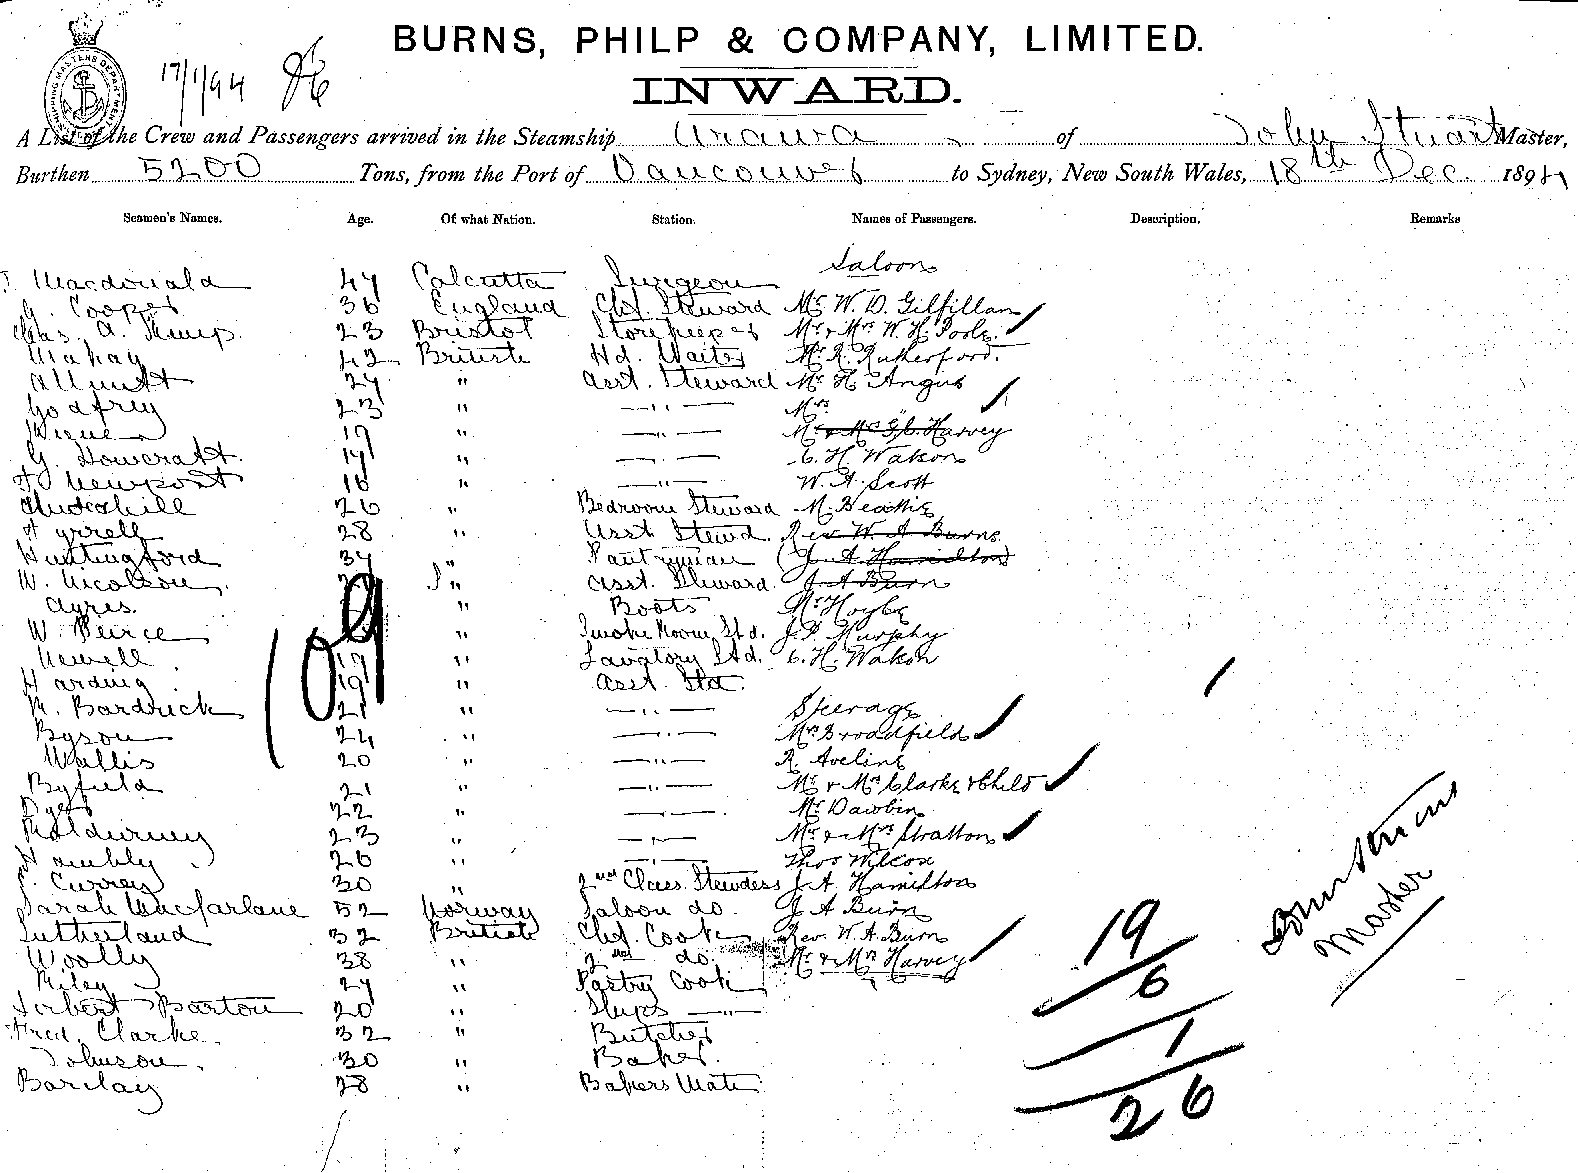 BURNS, PHILP & COMPANY, LIMITED.
INWARD.
17/1/94
A List of the Crew and Passengers arrived in the Steamship Arawa of John Stuart Master,
Burthen 5200 Tons, from the Port of Vancouver to Sydney, New South Wales, 18th Dec. 1894
Seamen's Names. Age. Of what Nation. Station. Names of Passengers. Description. Remarks
Saloon
Macdonald 47 Calcutta Surgeon
G. Cooper 36 England Chf. Steward Mr W. D. Gilfillan
Chas. A. Kemp. 23 Bristol Storekeeper Mr & Mrs W. H. Poole.
42 British Hd. Waiter Mr R. Rutherford.
27 " Asst. Steward Mr H Angus
Godfrey 23 " — " — Mrs
19 " — " — Mr & Mrs G. C. Harvey
G. Howcraft. 17 " — " — C. H. Watson
Newport 16 " — " — W. A. Scott
Underhill 26 " Bedroom Steward M. Beattie
Tyrrell 28 " Asst Stewd. Rev W. A Burns
Huntingford 34 " Pantryman (J. A. Hamilton)
W. Nicolson. " Asst. Steward. J A Burn
Ayres. " Boots Mr Hoyle
W. Peirce " Smoke Room Std. J. P. Murphy
Newell 19 " Lavatory Std. C. H. Wakon
Harding. 19 " Asst. Std.
M. Bardrick 21 " — " — Steerage
Byson 24 " — " — Mr Broadfield
Wallis 20 " — " — R. Aveline
Byfield 21 " — " — Mr & Mrs Clarke & Child
Dyer 22 " — " — Mr Dawbin
23 " — " — Mr & Mrs Stratton
Hambly 26 " — " — Thos Wilcox
Currey 30 " 2nd Class Stewdess J. A. Hamilton
Sarah Macfarlane 52 Norway Saloon do. J A Burn
Sutherland 32 British Chf. Cook Rev. W. A. Burn
Woolly 38 " 2nd do. Mr & Mrs Harvey
Riley 27 " Pastry Cook
Herbert Barton 20 " Ships — " —
Fred. Clarke. 32 " Butcher
Johnson. 30 " Baker.
Barclay 28 " Bakers Mate
109
19
6
1
26
John Stuart
Master